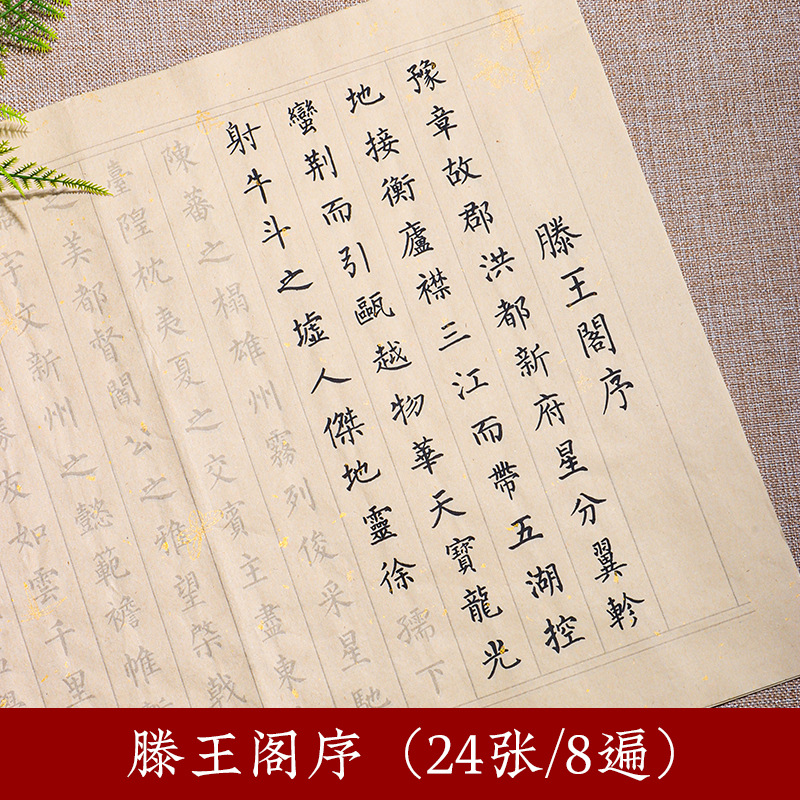 滕王閣序
豫章故郡洪都新府星分翼軫
地接衡廬襟三江而帶五湖控
蠻荆而引甌越物華天寶龍光
射牛斗之墟人傑地靈徐孺下
陳蕃之榻雄州霧列俊采星馳
臺隍枕夷夏之交賓主盡東
之美都督閻公之雅望棨戟
宇文新州之懿範襜帷
友如雲千里
滕王阁序（24张/8遍）